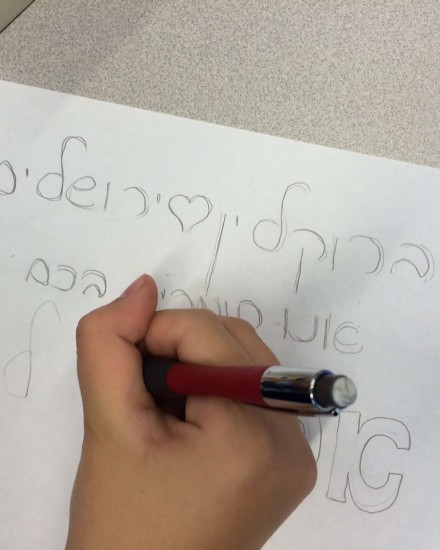 ברוקלין ♡ ירושלים
אנו תומכים בכם